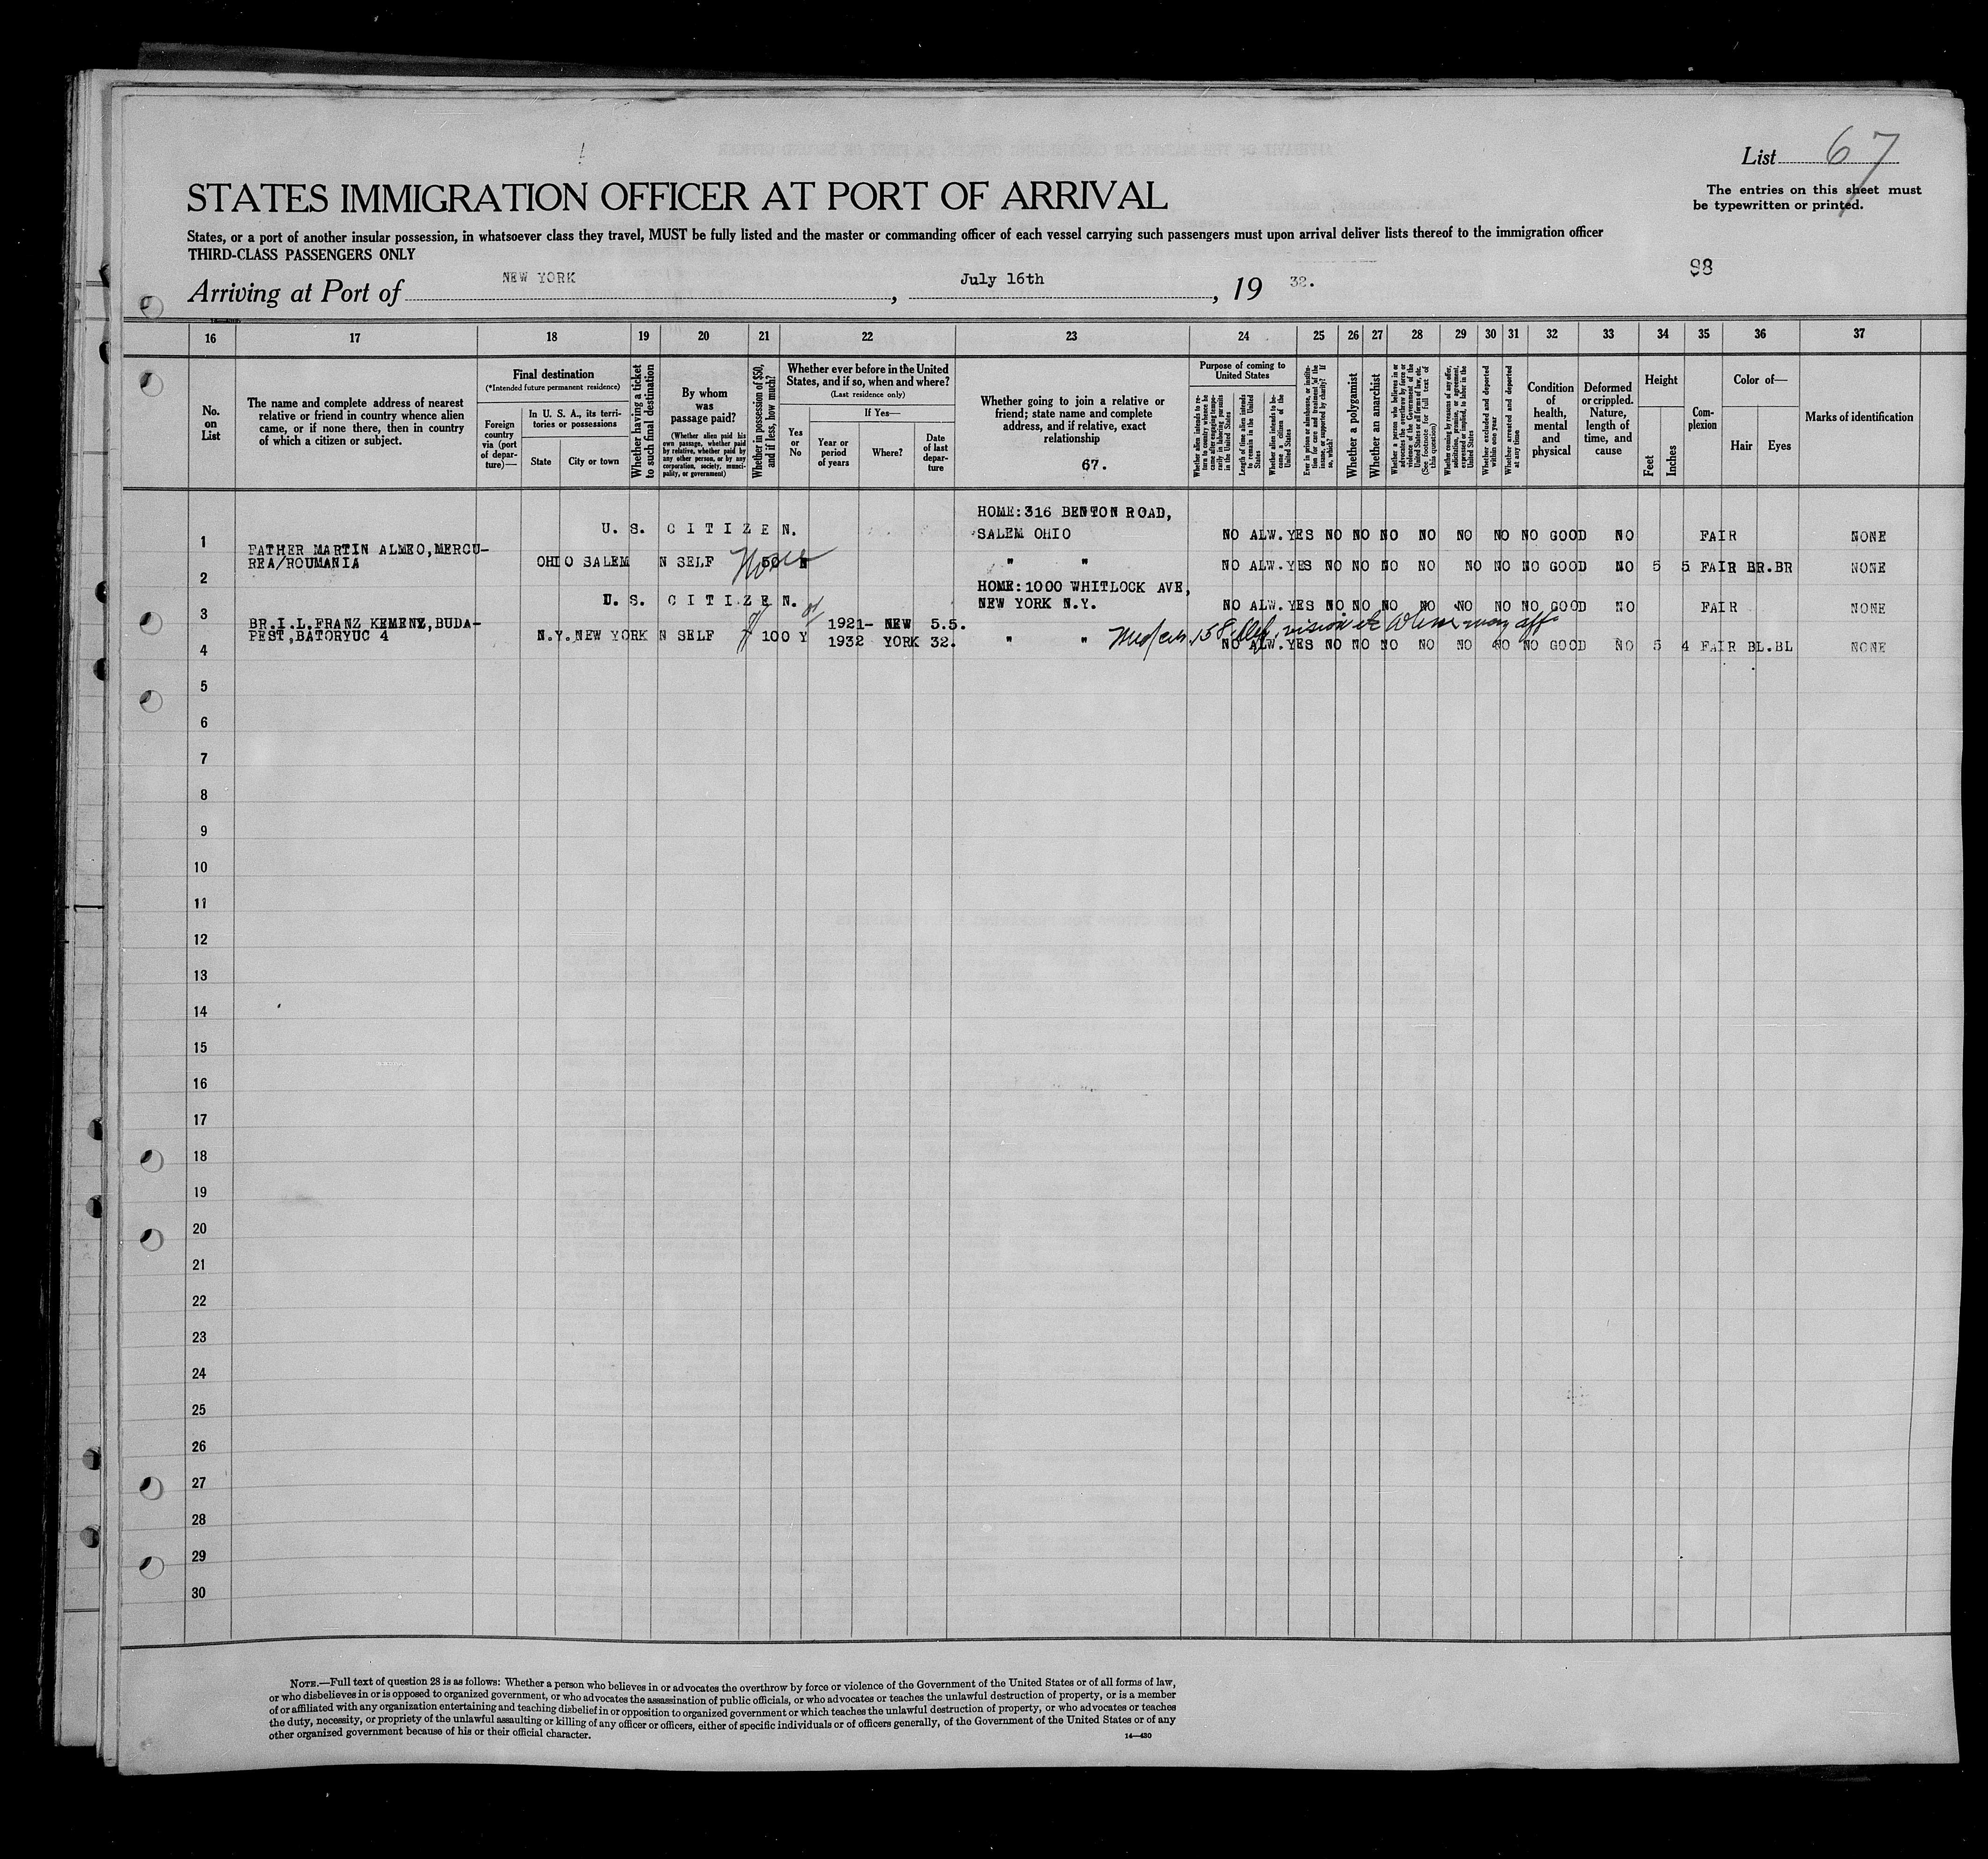 List 67
STATES IMMIGRATION OFFICER AT PORT OF ARRIVAL
The entries on this sheet must
be typewritten or printed.
States, or a port of another insular possession, in whatsoever class they travel, MUST be fully listed and the master or commanding officer of each vessel carrying such passengers must upon arrival deliver lists thereof to the immigration officer
THIRD-CLASS PASSENGERS ONLY
98
Arriving at Port of NEW YORK, July 16th, 19 32.
16 17 18 19 20 21 22 23 24 25 26 27 28 29 30 31 32 33 34 35 36 37
No.
on
List
The name and complete address of nearest
relative or friend in country whence alien
came, or if none there, then in country
of which a citizen or subject.
Final destination
(*Intended future permanent residence)
Foreign
country
via (port
of depar-
ture)—
In U. S. A., its terri-
tories or possessions
State
City or town
Whether having a ticket
to such final destination
By whom
was
passage paid?
(Whether alien paid his
own passage, whether paid
by relative, whether paid by
any other person, or by any
corporation, society, munici-
pality, or government)
Whether in possession of $50,
and if less, how much?
Whether ever before in the United
States, and if so, when and where?
(Last residence only)
If Yes—
Yes
or
No
Year or
period
of years
Where?
Date
of last
depar-
ture
Whether going to join a relative or
friend; state name and complete
address, and if relative, exact
relationship
67.
Purpose of coming to
United States
Whether alien intends to re-
turn to country whence he
came after engaging tempo-
rarily in laboring pursuits
in the United States
Length of time alien intends
to remain in the United
States
Whether alien intends to be-
come a citizen of the
United States
Ever in prison or almshouse, or institu-
tion for care and treatment of the
insane, or supported by charity? If
so, which?
Whether a polygamist
Whether an anarchist
Whether a person who believes in or
advocates the overthrow by force or
violence of the Government of the
United States or all forms of law, etc.
(See footnote for full text of
this question)
Whether coming by reasons of any offer,
solicitation, promise, or agreement,
expressed or implied, to labor in the
United States
Whether excluded and deported
within one year
Whether arrested and deported
at any time
Condition
of
health,
mental
and
physical
Deformed
or crippled.
Nature,
length of
time, and
cause
Height
Feet
Inches
Com-
plexion
Color of—
Hair
Eyes
Marks of identification
HOME:316 BENTON ROAD,
1 U. S. CITIZEN. SALEM OHIO NO ALW.YES NO NO NO NO NO NO NO GOOD NO FAIR NONE
FATHER MARTIN ALMEO,MERCU-
2 REA/ROUMANIA OHIO SALEM N SELF 50 None N " " NO ALW.YES NO NO NO NO NO NO NO GOOD NO 5 5 FAIR BR.BR NONE
HOME:1000 WHITLOCK AVE,
3 U. S. CITIZEN. NEW YORK N.Y. NO ALW.YES NO NO NO NO NO NO NO GOOD NO FAIR NONE
BR.I.L.FRANZ KEMENZ,BUDA- 1921- NEW 5.5.
4 PEST,BATORYUC 4 N.Y. NEW YORK N SELF 100 Y 1932 YORK 32. " " NO ALW.YES NO NO NO NO NO NO NO GOOD NO 5 4 FAIR BL.BL NONE
5
6
7
8
9
10
11
12
13
14
15
16
17
18
19
20
21
22
23
24
25
26
27
28
29
30
NOTE.—Full text of question 28 is as follows: Whether a person who believes in or advocates the overthrow by force or violence of the Government of the United States or of all forms of law,
or who disbelieves in or is opposed to organized government, or who advocates the assassination of public officials, or who advocates or teaches the unlawful destruction of property, or is a member
of or affiliated with any organization entertaining and teaching disbelief in or opposition to organized government or which teaches the unlawful destruction of property, or who advocates or teaches
the duty, necessity, or propriety of the unlawful assaulting or killing of any officer or officers, either of specific individuals or of officers generally, of the Government of the United States or of any
other organized government because of his or their official character.
14—430